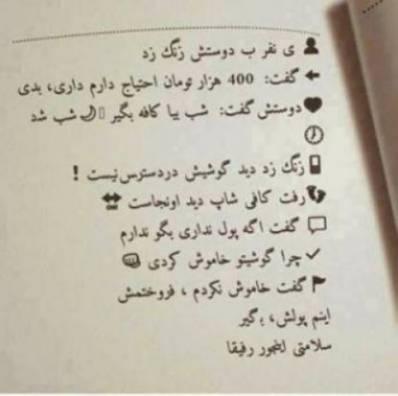 👤 ی نفر ب دوستش زنگ زد
← گفت: 400 هزار تومان احتیاج دارم داری، بدی
♥ دوستش گفت: شب بیا کافه بگیر ▯🌙 شب شد
🕐
📱 زنگ زد دید گوشیش دردسترس نیست !
👣 رفت کافی شاپ دید اونجاست
💬 گفت اگه پول نداری بگو ندارم
✓ چرا گوشیتو خاموش کردی 👊
⚑ گفت خاموش نکردم ، فروختمش
اینم پولش، بگیر
سلامتی اینجور رفیقا